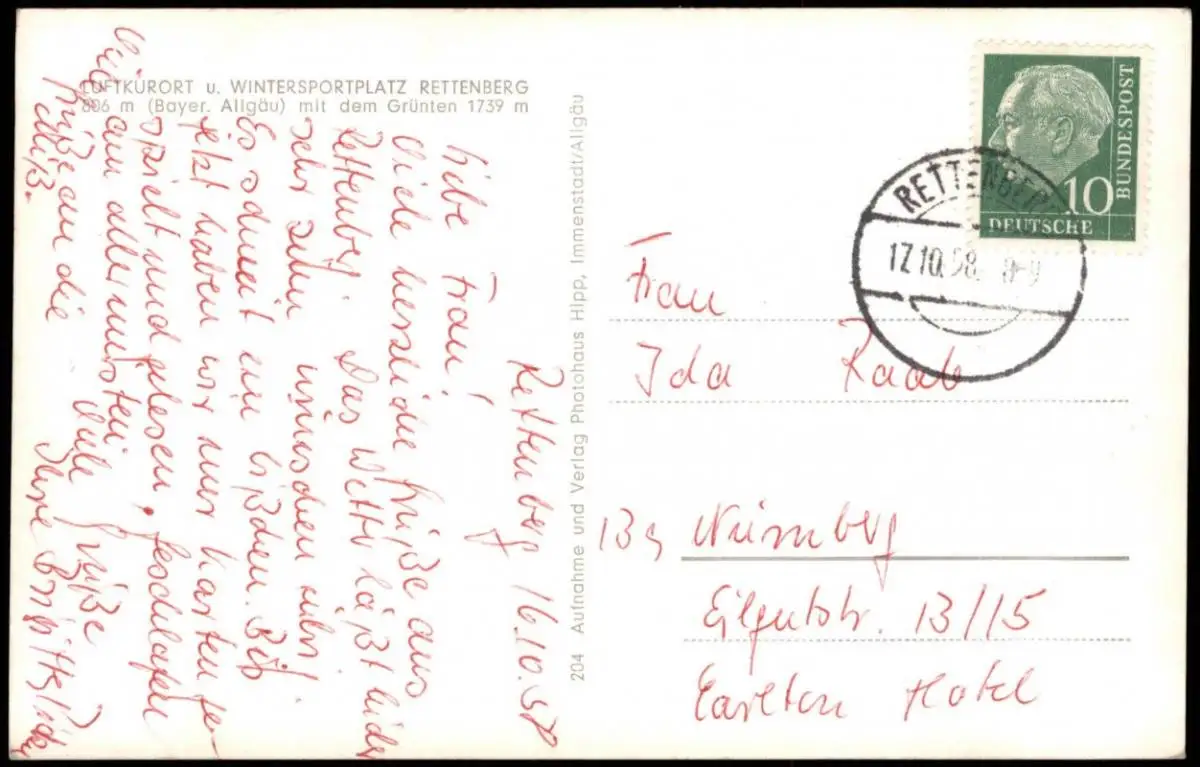 LUFTKURORT u. WINTERSPORTPLATZ RETTENBERG
806 m (Bayer. Allgäu) mit dem Grünten 1739 m
Rettenberg 16.10.58
Liebe Frau
viele herzliche Grüße aus
Rettenberg. Das Wetter läßt leider
sehr zu wünschen übrig
Es schneit ein bißchen. Bis
jetzt haben wir nur Karten ge-
spielt und gelesen, geschlafen
am allermeisten
Viele Grüße
Ihre Brigitte
Viele
Grüße an die
204 Aufnahme und Verlag Photohaus Hipp, Immenstadt/Allgäu
BUNDESPOST
10
DEUTSCHE
RETTENBERG
17.10.58. 8-9
Frau
Ida Raab
13a Nürnberg
Eilgutstr. 13/15
Carlton Hotel